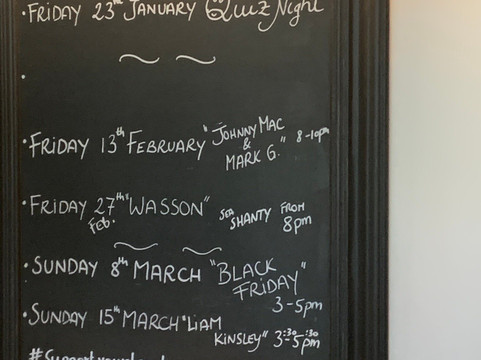 ·FRIDAY 23rd JANUARY Quiz Night
·FRIDAY 13th FEBRUARY "JOHNNY MAC & MARK G." 8-10pm
·FRIDAY 27th "WASSON" SEA SHANTY FROM 8pm
Feb.
·SUNDAY 8th MARCH "BLACK FRIDAY" 3-5pm
·SUNDAY 15th MARCH "LIAM KINSLEY" 3:30-5:30pm